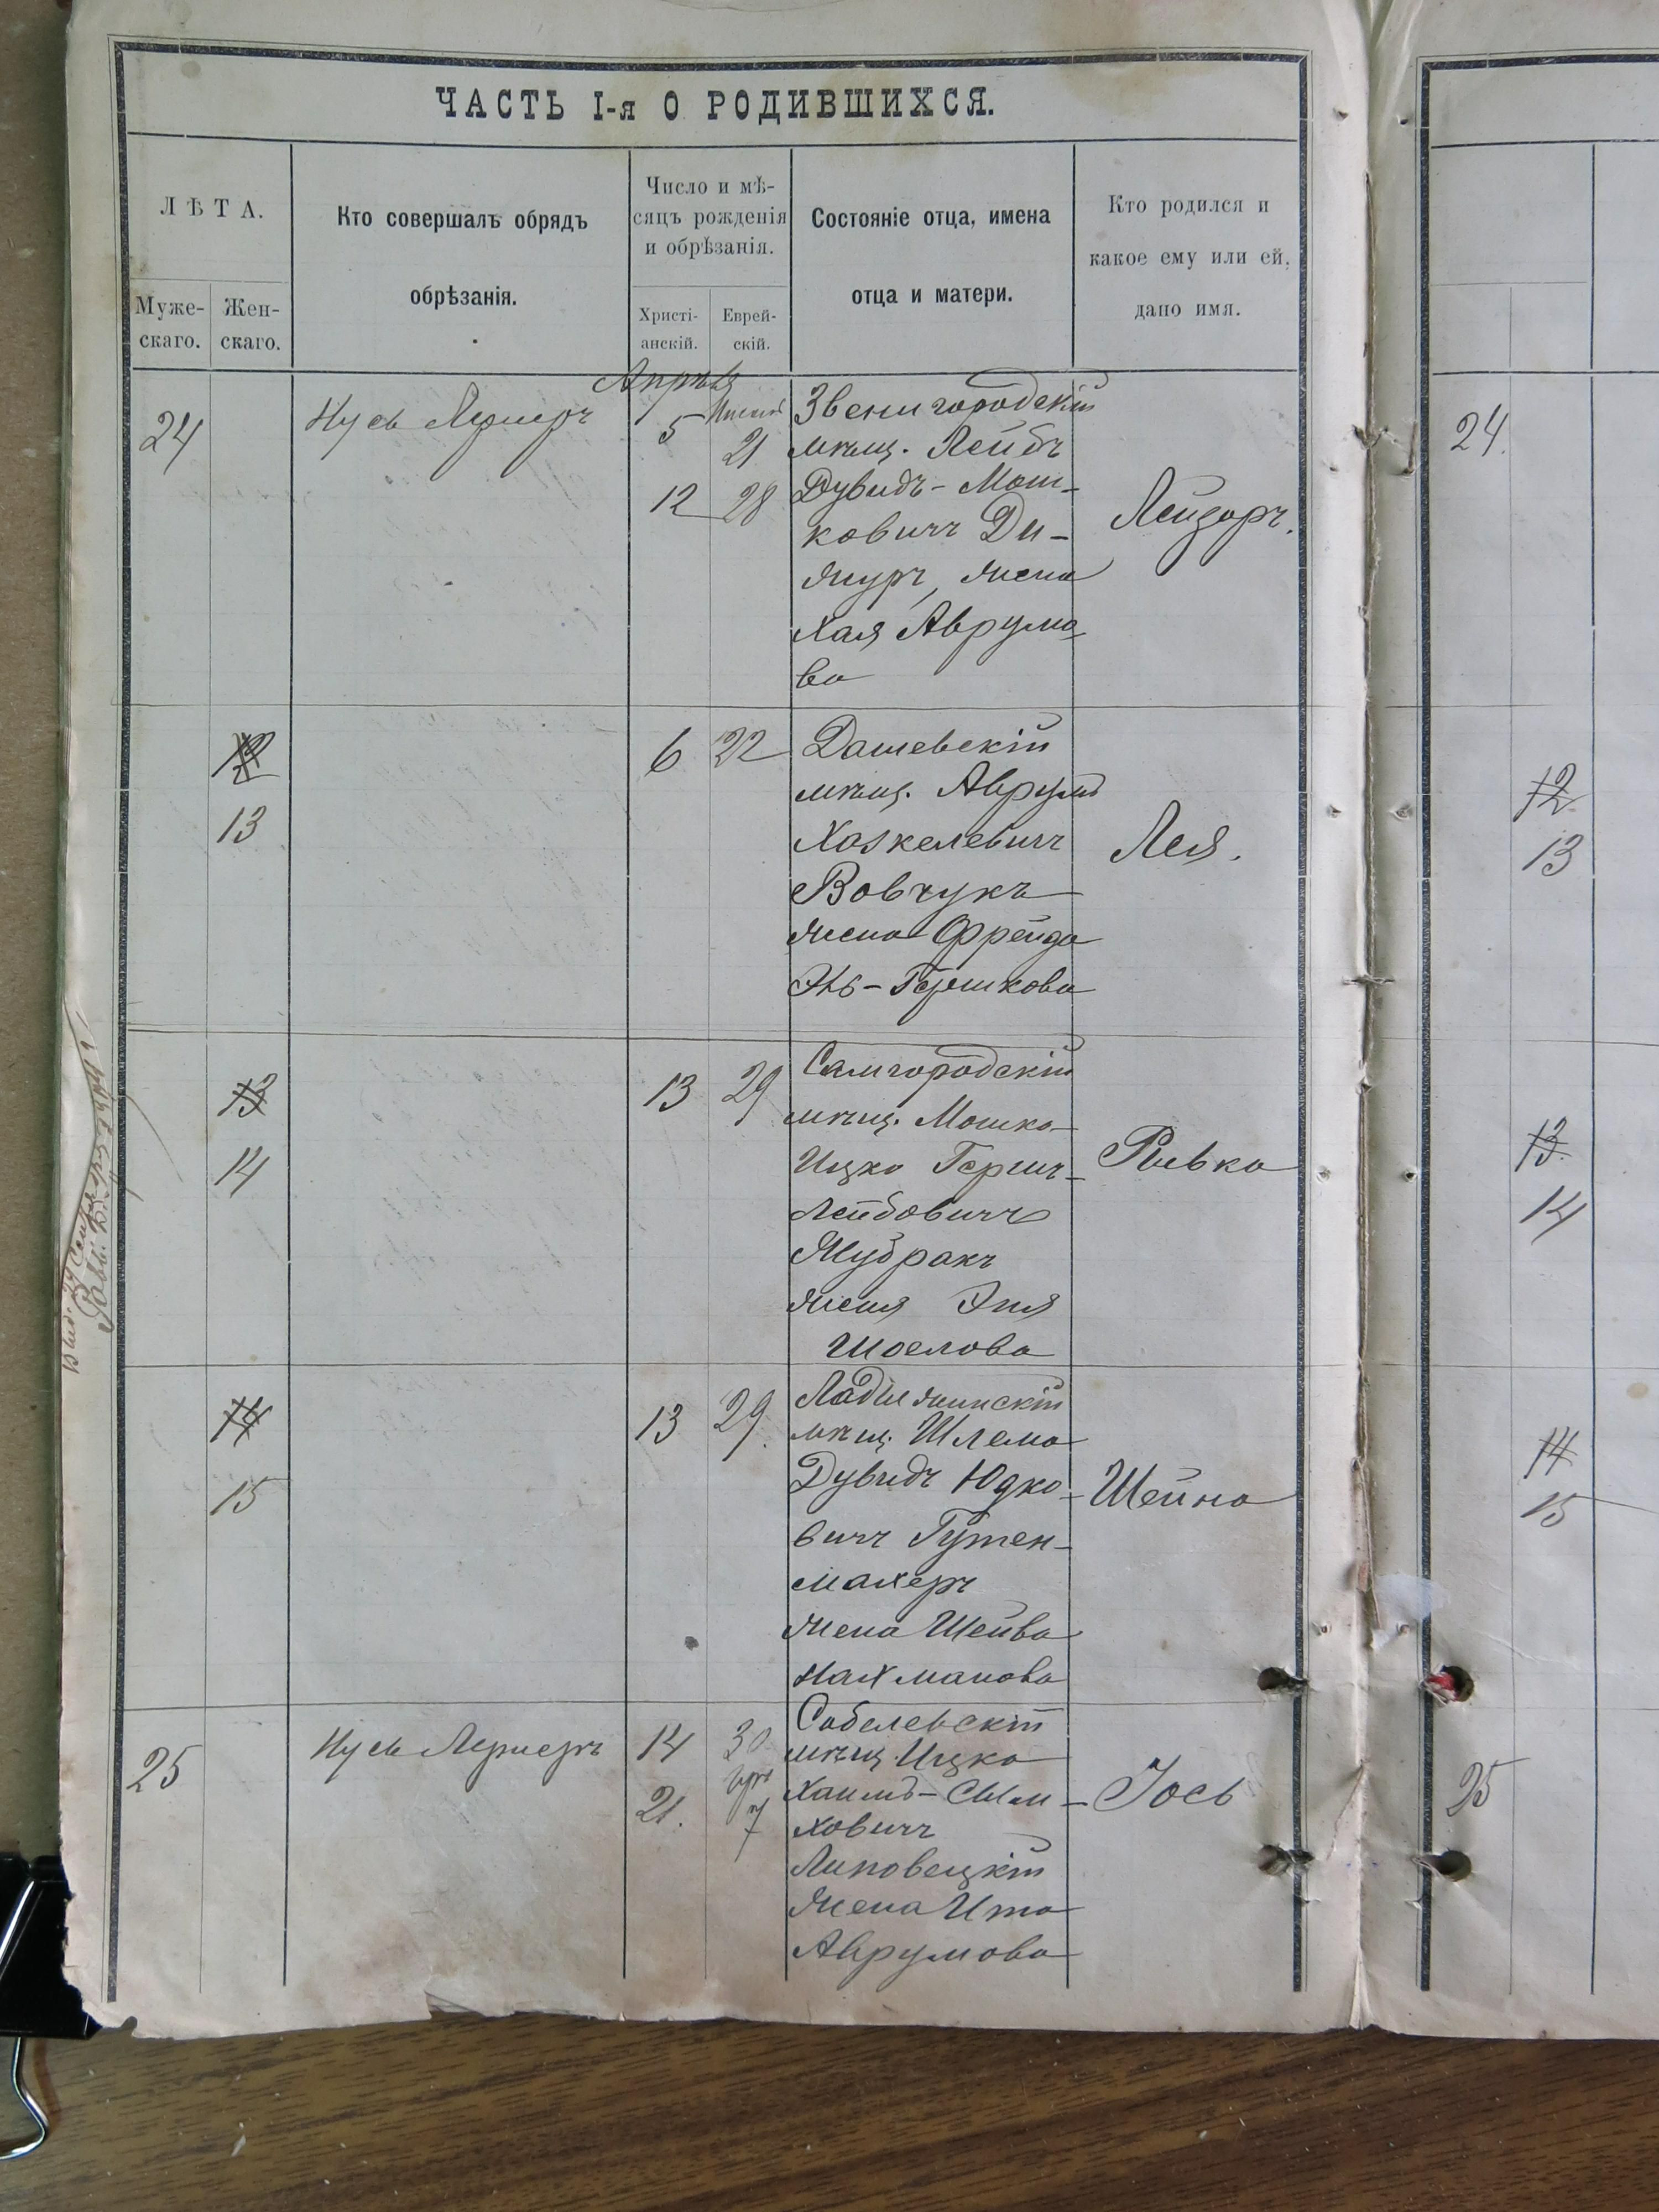 ЧАСТЬ I-я О РОДИВШИХСЯ.
ЛѢТА.
Муже-
скаго.
Жен-
скаго.
Кто совершалъ обрядъ
обрѣзанія.
Число и мѣ-
сяцъ рожденія
и обрѣзанія.
Христі-
анскій.
Еврей-
скій.
Состояніе отца, имена
отца и матери.
Кто родился и
какое ему или ей,
дано имя.
Апрѣль
24
Нусь Лернеръ
5
21
12
28
Звенигородскій
мѣщ. Лейбъ
Дувидъ-Мош-
ковичъ Ди-
журъ, жена
Хая Аврумо
ва
Лейзоръ.
12
13
6
22
Дашевскій
мѣщ. Аврумъ
Хаскелевичъ
Вовчукъ
жена Фрейда
Эть-Гершкова
Лея.
13
14
13
29
Самгородскій
мѣщ. Мошко-
Ицко Гершъ-
Лейбовичъ
Жубракъ
жена Эня
Шоелова
Ривка
14
15
13
29.
Ладыжинскій
мѣщ. Шлема
Дувидъ Юдко-
вичъ Гутен-
махеръ
жена Шейва
Нахманова
Шейна
25
Нусь Лернеръ
14
30
21.
7
Соболевскій
мѣщ. Ицко
Хаимъ-Сым-
ховичъ
Липовецкій
жена Ита
Аврумова
Іось
24.
12
13
13.
14
14
15
25